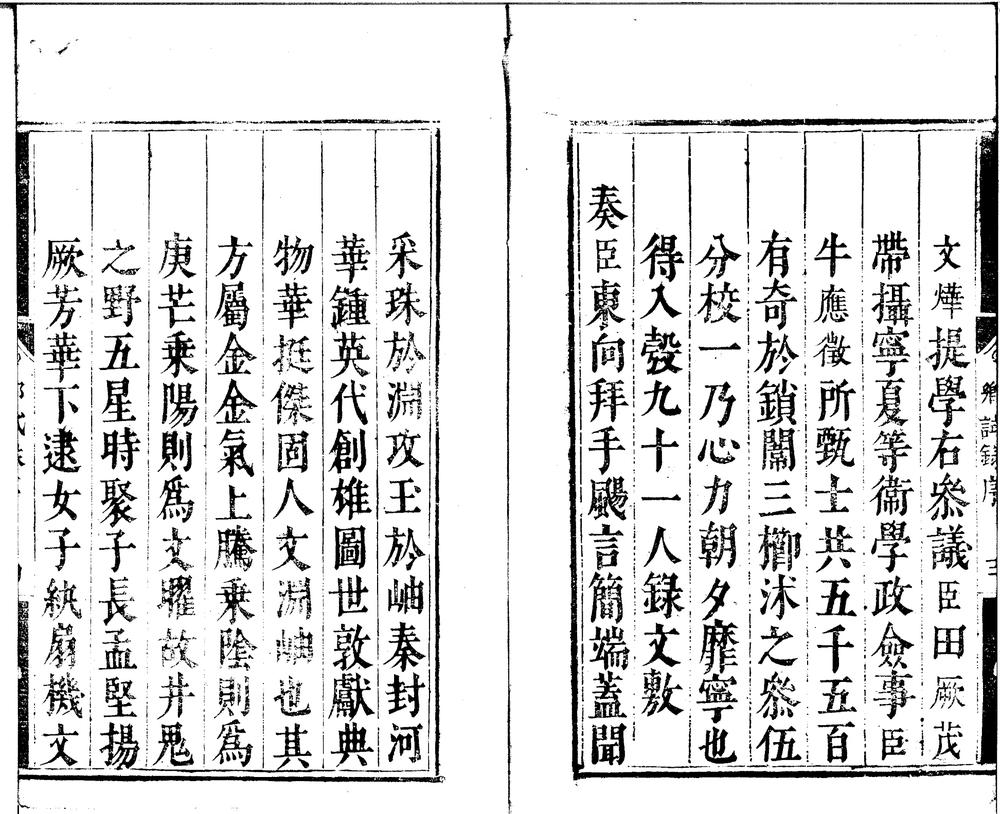 文燁提學右叅議臣田厥茂
帶攝寧夏等衞學政僉事臣
牛應徵所甄士共五千五百
有奇於鎖闈三櫛沐之叅伍
分校一乃心力朝夕靡寧也
得入彀九十一人録文敷
奏臣東向拜手颺言簡端蓋聞
采珠於淵攻玉於岫秦封河
華鍾英代創雄圖世敦獻典
物華挺傑固人文淵岫也其
方屬金金氣上騰乘陰則爲
庚芒乘陽則爲文曜故井鬼
之野五星時聚子長孟堅揚
厥芳華下逮女子紈扇機文
鄉試録序